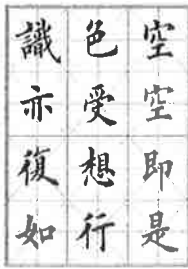 空空即是
色受想行
識亦復如